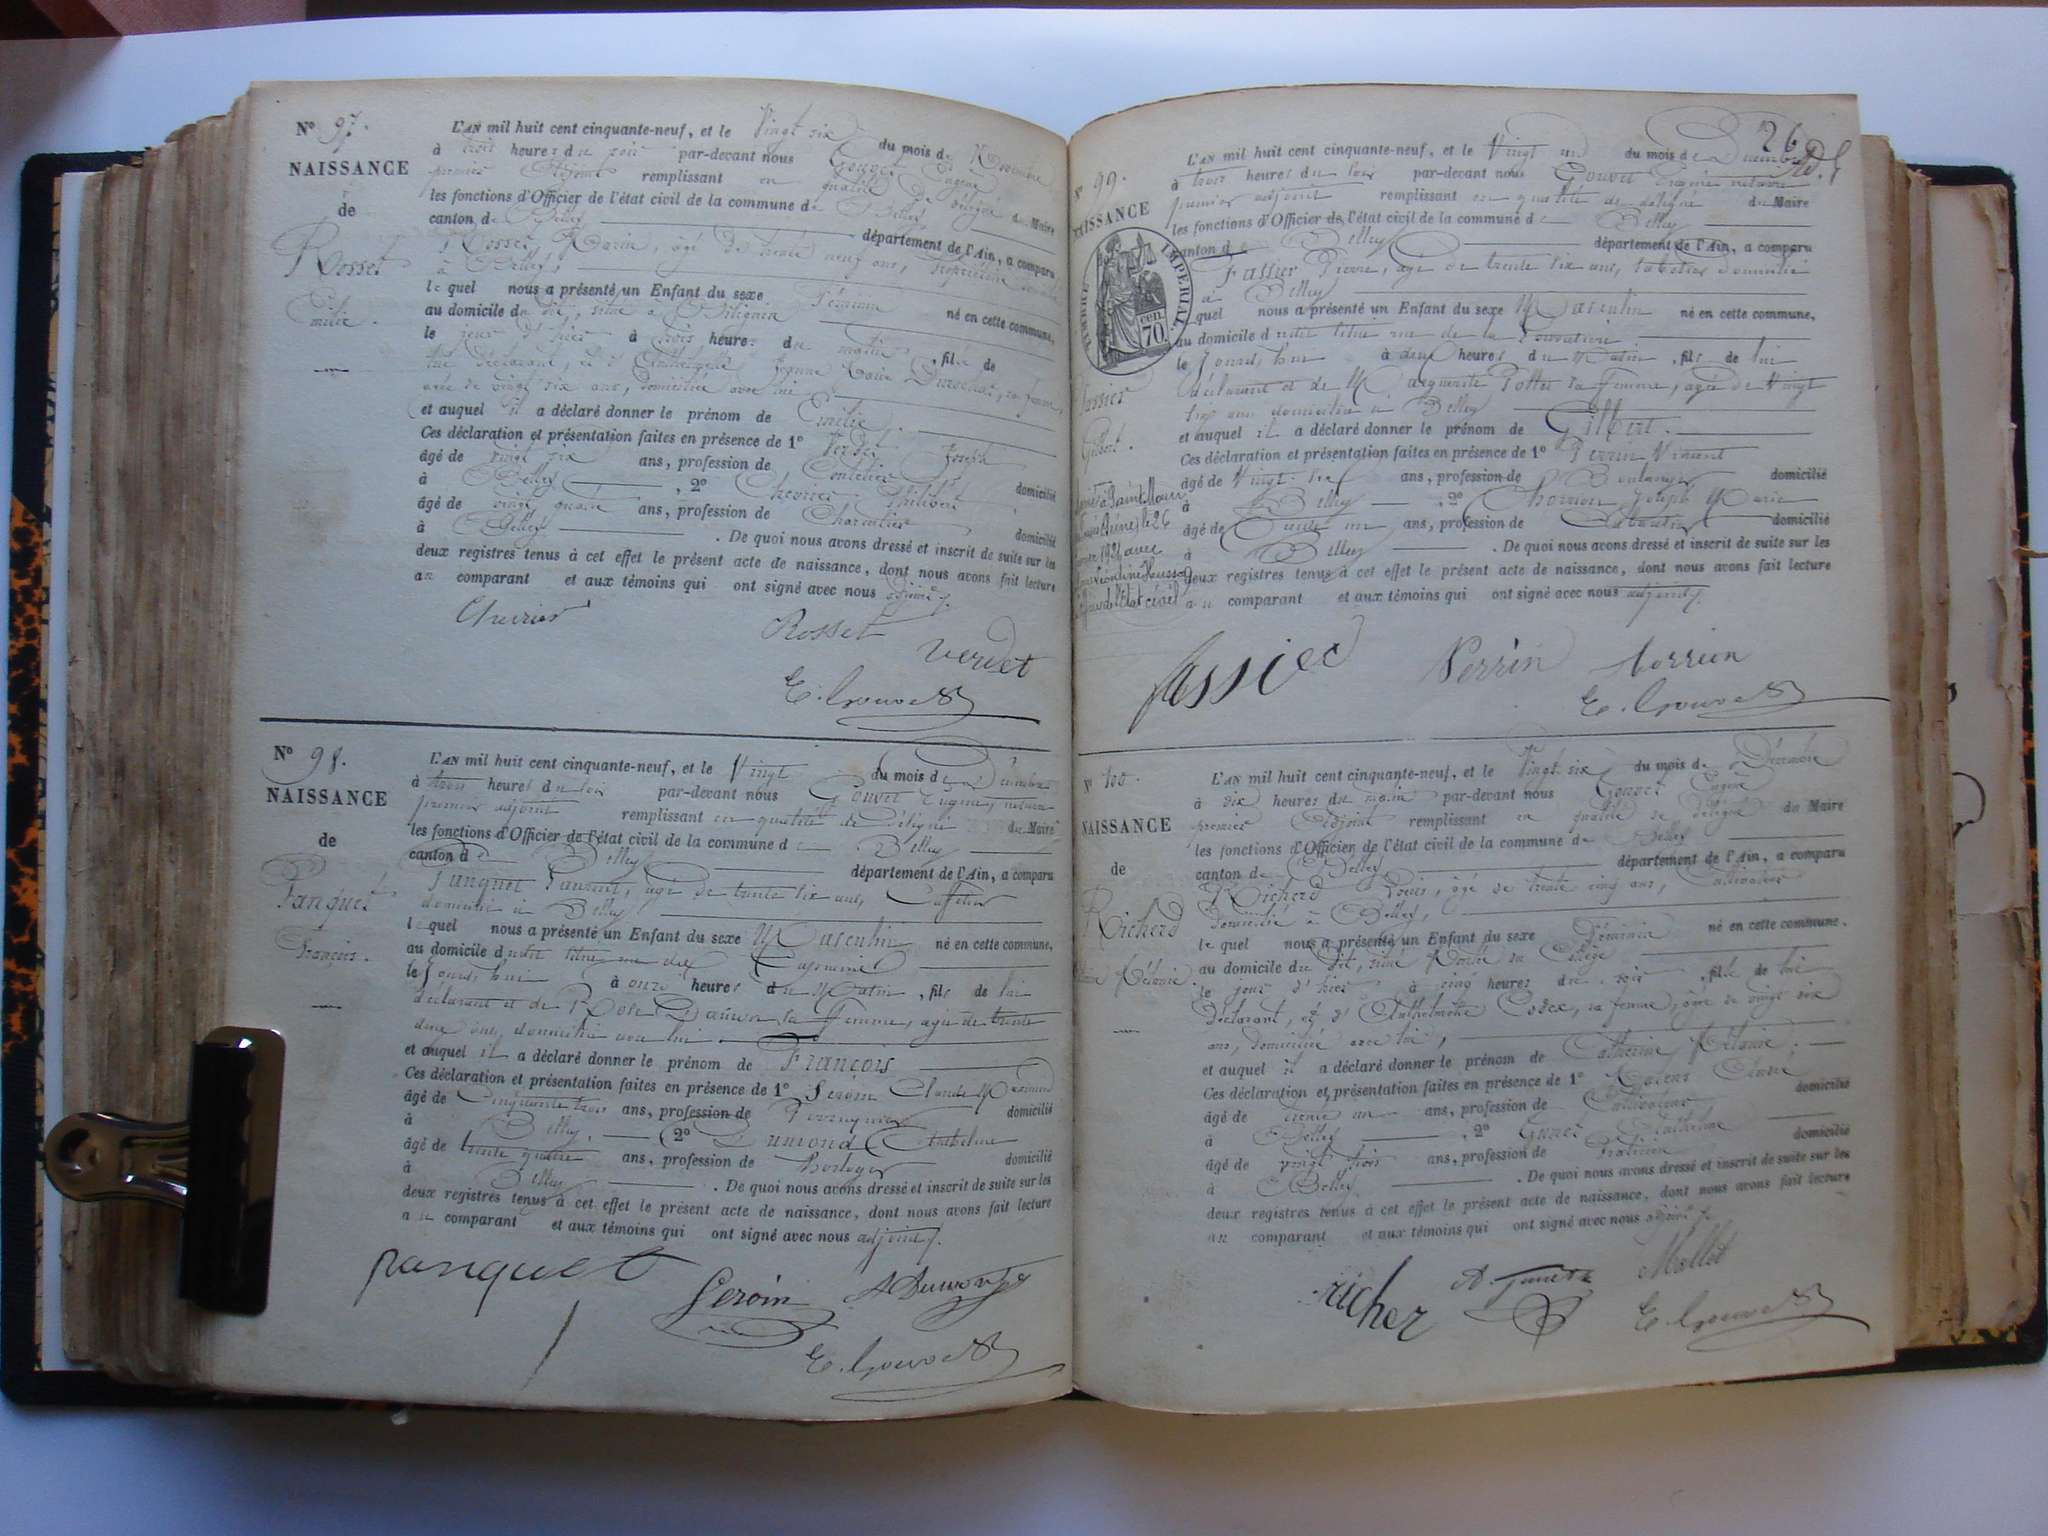 N° 97.
NAISSANCE
de
Rosset
Emilie.
L'AN mil huit cent cinquante-neuf, et le Vingt six du mois de Novembre
à trois heures du soir par-devant nous Gouvet Eugène
premier Adjoint remplissant en qualité de délégué du Maire
les fonctions d'Officier de l'état civil de la commune de Belley
canton de Belley département de l'Ain, a comparu
Rosset, âgé de trente neuf ans, propriétaire
à Belley,
lequel nous a présenté un Enfant du sexe Féminin né en cette commune,
au domicile du dit, situé à
le jour d'hier à trois heures du matin, fille de
lui déclarant, et d'Anthelmette Jeanne Marie sa femme,
âgée de vingt six ans, domiciliée avec lui
et auquel il a déclaré donner le prénom de Emilie.
Ces déclaration et présentation faites en présence de 1° Verdet Joseph
âgé de vingt six ans, profession de domicilié
à Belley, 2° Chevrier Philibert
âgé de vingt quatre ans, profession de domicilié
à Belley. De quoi nous avons dressé et inscrit de suite sur les
deux registres tenus à cet effet le présent acte de naissance, dont nous avons fait lecture
au comparant et aux témoins qui ont signé avec nous adjoint.
Chevrier Rosset Verdet
E. Gouvet
N° 98.
NAISSANCE
de
Panquet
François.
L'AN mil huit cent cinquante-neuf, et le Vingt du mois de Décembre
à trois heures du soir par-devant nous Gouvet Eugène, notaire
premier adjoint remplissant en qualité de délégué du Maire
les fonctions d'Officier de l'état civil de la commune de Belley
canton de Belley département de l'Ain, a comparu
Panquet Laurent, âgé de trente six ans, Cafetier
domicilié à Belley
lequel nous a présenté un Enfant du sexe Masculin né en cette commune,
au domicile du dit situé rue des Capucins
le Jourd'hui à onze heures du Matin, fils de lui
déclarant et de Rose sa Femme, agée de trente
deux ans, domiciliée avec lui
et auquel il a déclaré donner le prénom de François
Ces déclaration et présentation faites en présence de 1° Geroin Claude
âgé de Cinquante trois ans, profession de domicilié
à Belley, 2° Dumond Anthelme
âgé de trente quatre ans, profession de horloger domicilié
à Belley. De quoi nous avons dressé et inscrit de suite sur les
deux registres tenus à cet effet le présent acte de naissance, dont nous avons fait lecture
au comparant et aux témoins qui ont signé avec nous adjoint.
panquet Geroin A Dumond
E. Gouvet
26
N° 99.
NAISSANCE
TIMBRE IMPERIAL
70 cen.
Fassier
Gilbert.
L'AN mil huit cent cinquante-neuf, et le Vingt un du mois de Décembre
à trois heures du soir par-devant nous Gouvet Eugène notaire
premier adjoint remplissant en qualité de délégué du Maire
les fonctions d'Officier de l'état civil de la commune de Belley
canton de Belley département de l'Ain, a comparu
Fassier Pierre, âgé de trente six ans, sabotier domicilié
à Belley
lequel nous a présenté un Enfant du sexe Masculin né en cette commune,
au domicile du dit situé rue de la
le Jourd'hui à deux heures du Matin, fils de lui
déclarant et de Marguerite sa Femme, agée de Vingt
sept ans domiciliée à Belley
et auquel il a déclaré donner le prénom de Gilbert.
Ces déclaration et présentation faites en présence de 1° Perrin Vincent
âgé de Vingt-six ans, profession de Boulanger domicilié
à Belley, 2° Joseph Marie
âgé de ans, profession de domicilié
à Belley. De quoi nous avons dressé et inscrit de suite sur les
deux registres tenus à cet effet le présent acte de naissance, dont nous avons fait lecture
au comparant et aux témoins qui ont signé avec nous adjoint.
à Saint-Maur
le 26
1921 avec
Léontine
de l'Etat civil
fassier Perrin
E. Gouvet
N° 100.
NAISSANCE
de
Richerd
Mélanie.
L'AN mil huit cent cinquante-neuf, et le Vingt six du mois de Décembre
à dix heures du matin par-devant nous Gouvet Eugène
premier Adjoint remplissant en qualité de délégué du Maire
les fonctions d'Officier de l'état civil de la commune de Belley
canton de Belley département de l'Ain, a comparu
Richerd Louis, âgé de trente cinq ans, Cultivateur
domicilié à Belley,
lequel nous a présenté un Enfant du sexe Féminin né en cette commune,
au domicile du dit, situé du Collège
le jour d'hier à cinq heures du soir, fille de lui
déclarant, et d'Anthelmette sa femme, âgée de vingt six
ans, domiciliée avec lui,
et auquel il a déclaré donner le prénom de Catherine Mélanie.
Ces déclaration et présentation faites en présence de 1°
âgé de trente un ans, profession de Cultivateur domicilié
à Belley, 2° Anthelme
âgé de vingt trois ans, profession de domicilié
à Belley. De quoi nous avons dressé et inscrit de suite sur les
deux registres tenus à cet effet le présent acte de naissance, dont nous avons fait lecture
au comparant et aux témoins qui ont signé avec nous adjoint.
richer Mollet
E. Gouvet